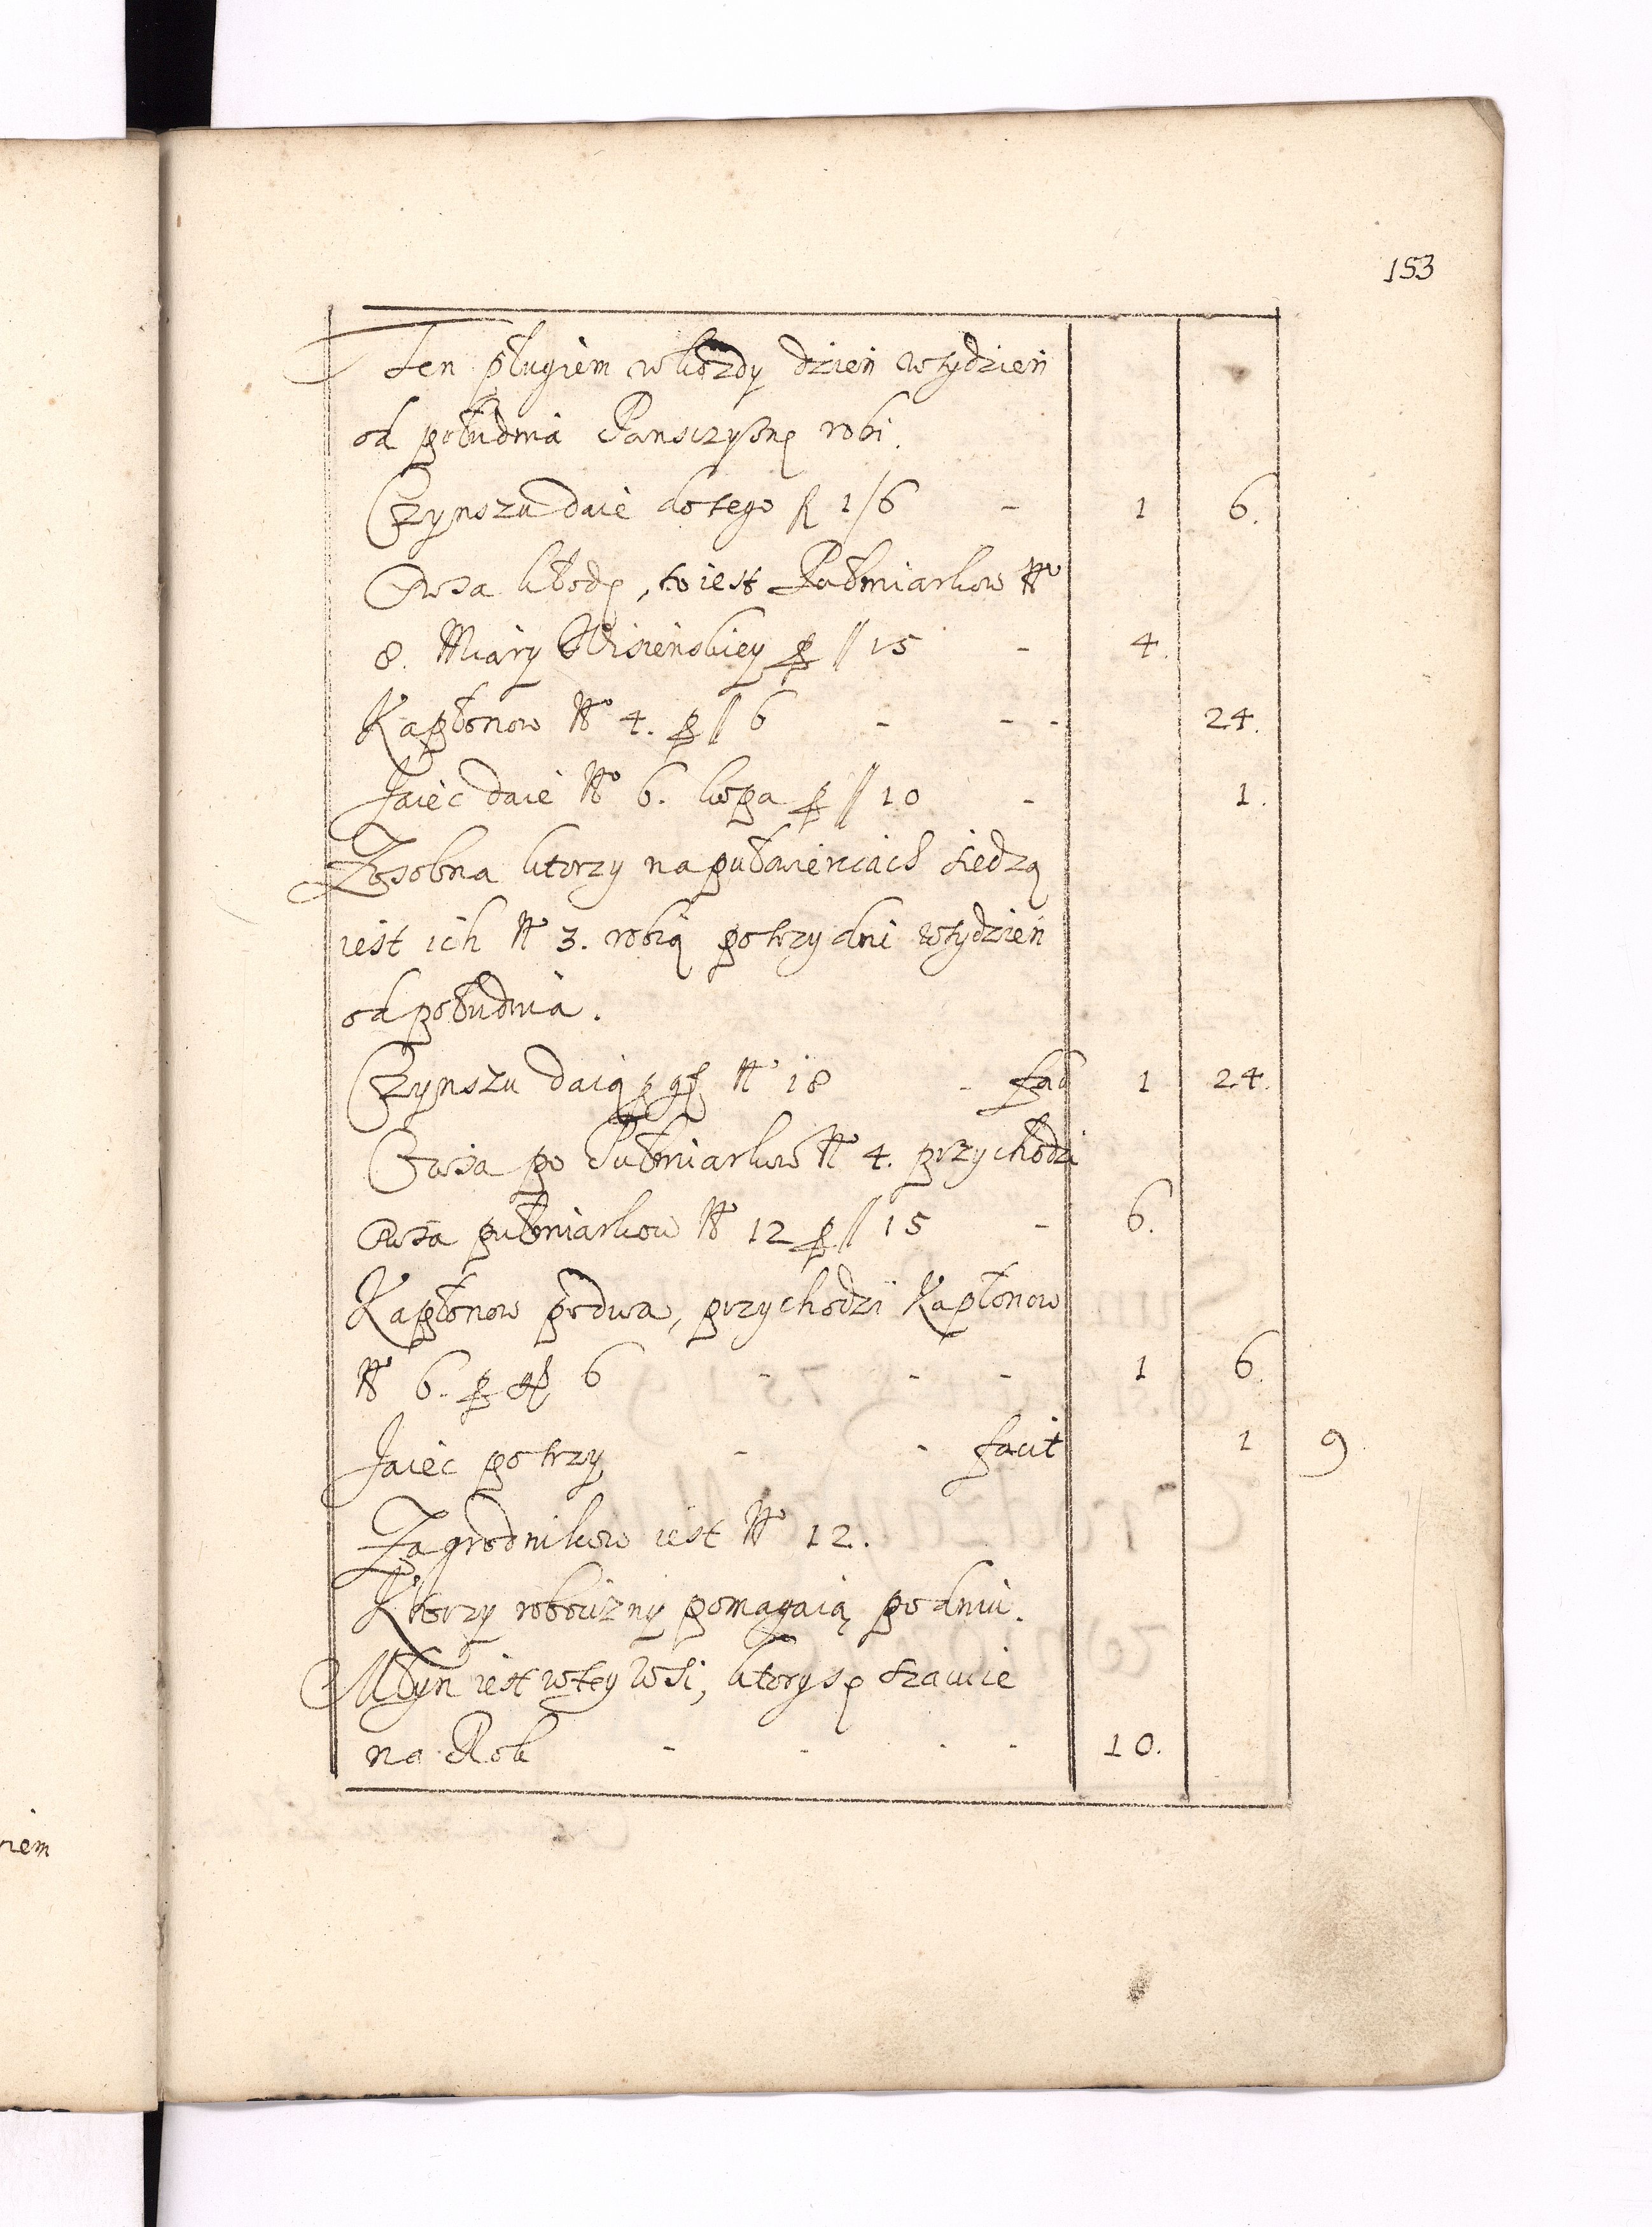 153
Ten pługiem wkożdy dzień wtydzień
od południa Pansczyznę robi.
Czynszu daie do tego fl 1/6 - 1 6.
Owsa kłodę, to iest Pułmiarkow No
8. Miary Wisieńskiey p // 15 - 4.
Kapłonow No 4. p // 6 - - - 24.
Jaiec daie No 6. kopa p // 10 - 1.
Zosobna ktorzy na pułćwierciach siedzą
iest ich No 3. robią po trzy dni wtydzień
od południa.
Czynszu daią p gr No 18 - fac 1 24.
Owsa po Pułmiarkow No 4. przychodzi
Owsa pułmiarkow No 12 p // 15 - 6.
Kapłonow po dwa, przychodzi Kapłonow
No 6. p gr 6 - - - 1 6.
Jaiec po trzy - - facit 1 9
Zagrodnikow iest No 12.
Ktorzy robocizny pomagaią po dniu.
Młyn iest wtey wsi, ktory sę
na Rok - - - - 10.
riem